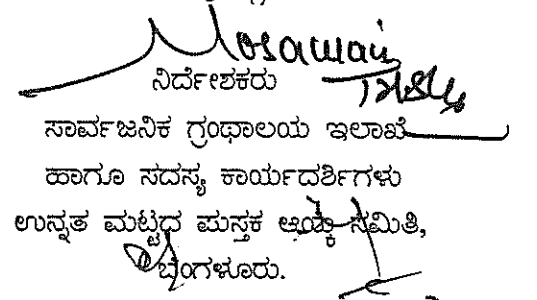 ನಿರ್ದೇಶಕರು
ಸಾರ್ವಜನಿಕ ಗ್ರಂಥಾಲಯ ಇಲಾಖೆ
ಹಾಗೂ ಸದಸ್ಯ ಕಾರ್ಯದರ್ಶಿಗಳು
ಉನ್ನತ ಮಟ್ಟದ ಪುಸ್ತಕ ಆಯ್ಕೆ ಸಮಿತಿ,
ಬೆಂಗಳೂರು.